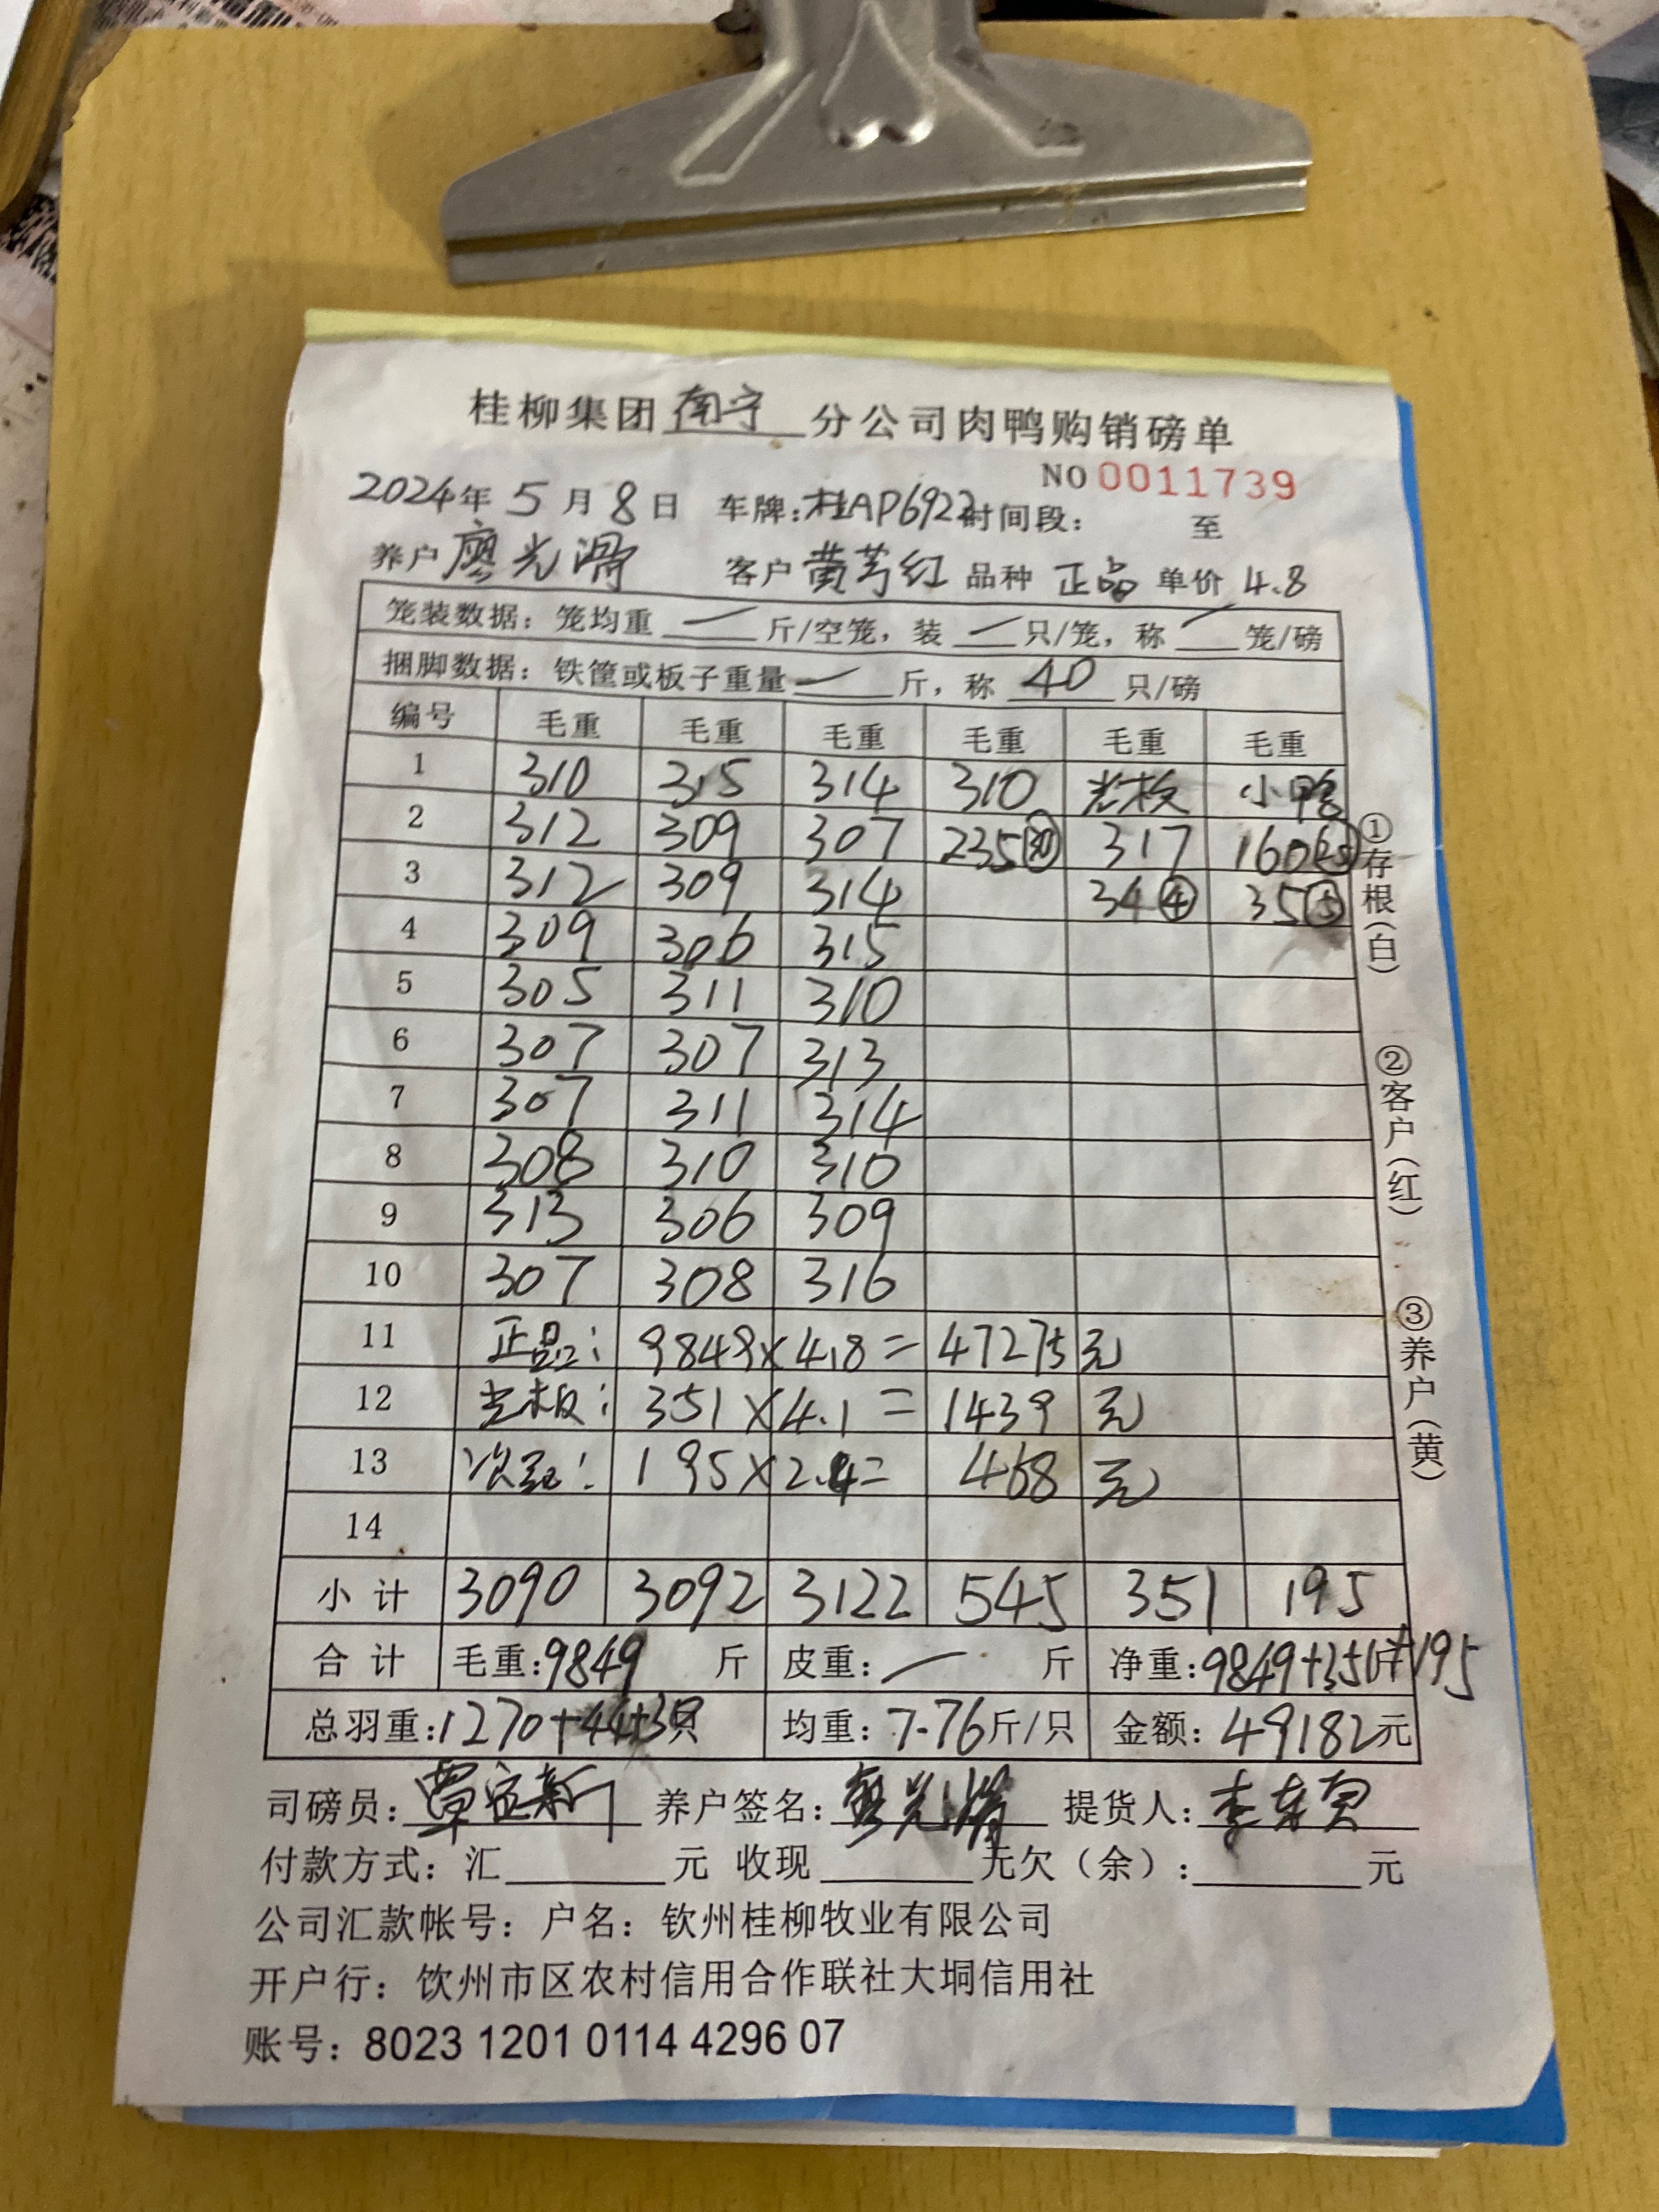 桂柳集团南宁分公司肉鸭购销磅单
NO 0011739
2024年 5月8日 车牌:桂AP6922时间段: 至
养户 廖光 客户 黄红 品种 正品 单价 4.8
笼装数据: 笼均重 — 斤/空笼, 装 — 只/笼, 称 — 笼/磅
捆脚数据: 铁筐或板子重量 — 斤, 称 40 只/磅
编号 毛重 毛重 毛重 毛重 毛重 毛重
1 310 315 314 310 光板 小鸭
2 312 309 307 235㉚ 317 160㉕
3 312 309 314 34④ 35⑤
4 309 306 315
5 305 311 310
6 307 307 313
7 307 311 314
8 308 310 310
9 313 306 309
10 307 308 316
11 正品: 9849×4.8= 47275元
12 光板: 351×4.1= 1439元
13 195×2.4= 468元
14
小计 3090 3092 3122 545 351 195
合计 毛重:9849 斤 皮重: — 斤 净重:9849+351斤+195
总羽重:1270+44+30只 均重:7.76斤/只 金额:49182元
司磅员: 养户签名: 提货人:李
付款方式: 汇 元 收现 元欠(余): 元
公司汇款帐号: 户名: 钦州桂柳牧业有限公司
开户行: 饮州市区农村信用合作联社大垌信用社
账号: 8023 1201 0114 4296 07
①存根(白)
②客户(红)
③养户(黄)